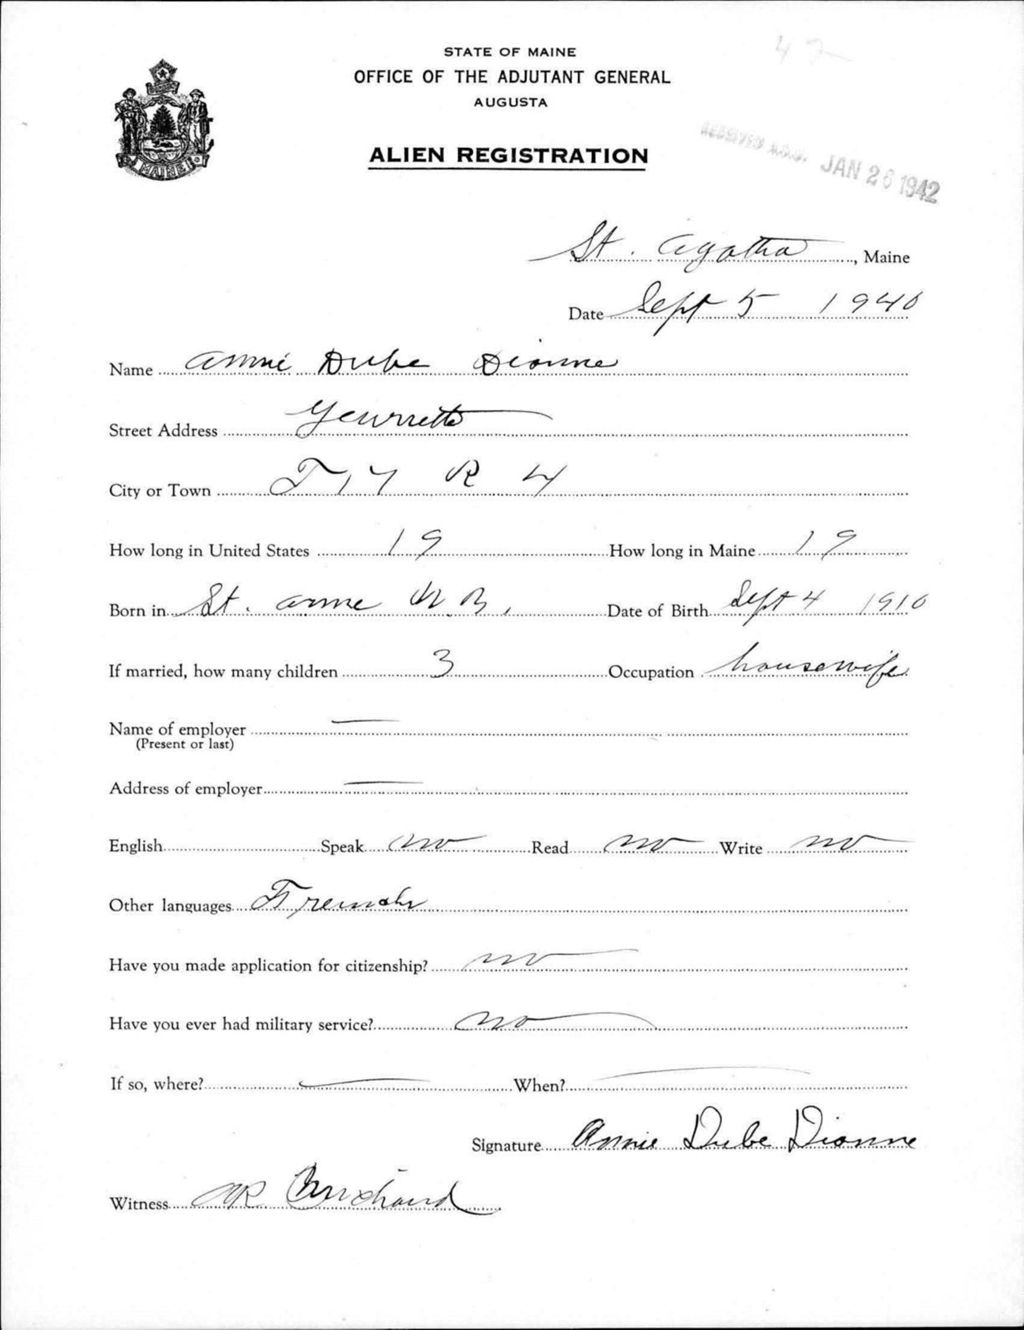 47
STATE OF MAINE
OFFICE OF THE ADJUTANT GENERAL
AUGUSTA
ALIEN REGISTRATION
RECEIVED A.G.O. JAN 26 1942
MAINE
St. Agatha, Maine
Date Sept 5 1940
Name Annie Dube Dionne
Street Address
City or Town T 17 R 4
How long in United States 19 How long in Maine 19
Born in St. Anne N B. Date of Birth Sept 4 1910
If married, how many children 3 Occupation housewife
Name of employer —
(Present or last)
Address of employer —
English Speak no Read no Write no
Other languages French
Have you made application for citizenship? no
Have you ever had military service? no
If so, where? — When? —
Signature Annie Dube Dionne
Witness